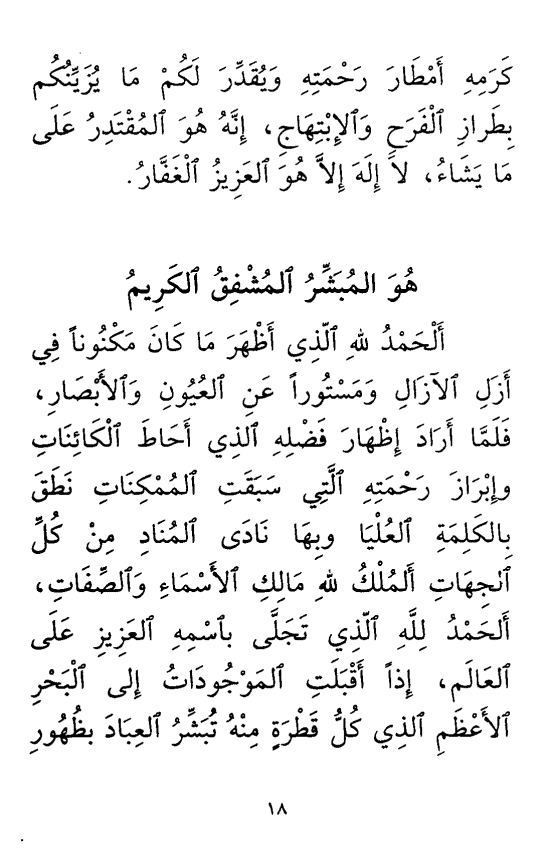 كَرَمِهِ أَمْطَارَ رَحْمَتِهِ وَيُقَدِّرَ لَكُمْ مَا يُزَيِّنُكُم
بِطَرازِ ٱلْفَرَحِ وَٱلإِبْتِهَاجِ، إِنَّهُ هُوَ ٱلمُقْتَدِرُ عَلَى
مَا يَشَاءُ، لاَ إِلَهَ إِلاَّ هُوَ ٱلعَزِيزُ ٱلْغَفَّارُ.
هُوَ المُبَشِّرُ ٱلمُشْفِقُ ٱلكَرِيمُ
أَلْحَمْدُ للهِ ٱلَّذِي أَظْهَرَ مَا كَانَ مَكْنُوناً فِي
أَزَلِ ٱلآزَالِ وَمَسْتُوراً عَنِ ٱلعُيُونِ وَٱلأَبْصَارِ،
فَلَمَّا أَرَادَ إِظْهَارَ فَضْلِهِ ٱلذِي أَحَاطَ ٱلْكَائِنَاتِ
وإِبْرَازَ رَحْمَتِهِ ٱلَّتِي سَبَقَتِ ٱلمُمْكِنَاتِ نَطَقَ
بِالكَلِمَةِ ٱلعُلْيَا وبِهَا نَادَى ٱلمُنَادِ مِنْ كُلِّ
ٱلجِهَاتِ أَلمُلْكُ للهِ مَالِكِ ٱلأَسْمَاءِ وَٱلصِّفَاتِ،
أَلحَمْدُ لِلَّهِ ٱلَّذِي تَجَلَّى بٱسْمِهِ ٱلعَزِيزِ عَلَى
ٱلعَالَمِ، إِذاً أَقْبَلَتِ ٱلمَوْجُودَاتُ إِلى ٱلْبَحْرِ
ٱلأَعْظَمِ ٱلذِي كُلُّ قَطْرَةٍ مِنْهُ تُبَشِّرُ ٱلعِبَادَ بِظُهُورِ
١٨